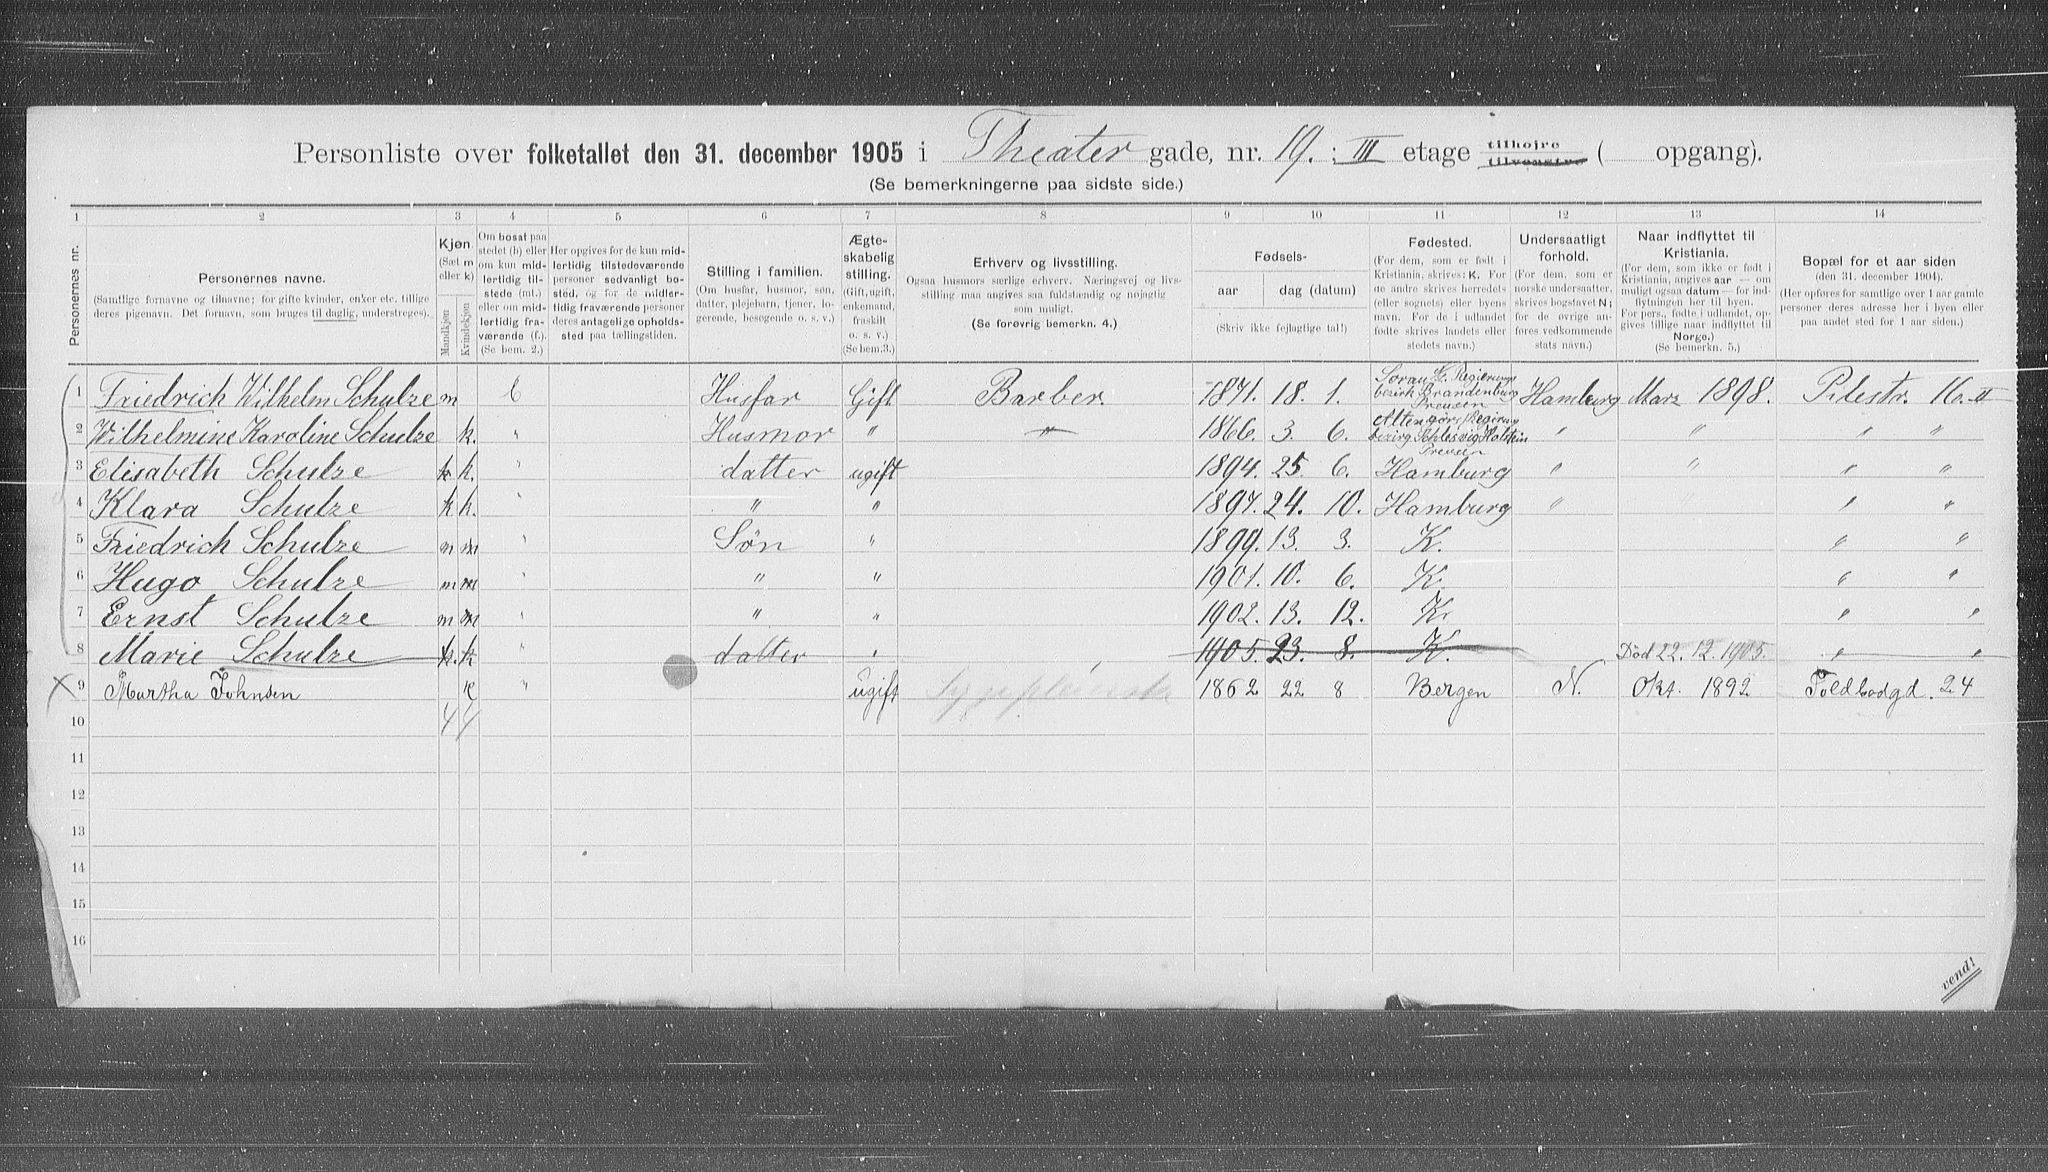 Personliste over folketallet den 31. december 1905 i Theater gade, nr. 19. : III etage tilhøjre tilvenstre ( opgang).
(Se bemerkningerne paa sidste side.)
1 2 3 4 5 6 7 8 9 10 11 12 13 14
Personernes nr.
Personernes navne.
(Samtlige fornavne og tilnavne; for gifte kvinder, enker etc. tillige deres pigenavn. Det fornavn, som bruges til daglig, understreges).
Kjøn.
(Sæt m eller k)
Mandkjøn
Kvindekjøn
Om bosat paa stedet (b) eller om kun midlertidig tilstede (mt.) eller om midlertidig fraværende (f.). (Se bem. 2.)
Her opgives for de kun midlertidig tilstedeværende personer sedvanligt bosted, og for de midlertidig fraværende personer deres antagelige opholdssted paa tællingstiden.
Stilling i familien.
(Om husfar, husmor, søn, datter, plejebarn, tjener, logerende, besøgende o. s. v.)
Ægteskabelig stilling.
(Gift, ugift, enkemand, fraskilt o. s. v.)
(Se bem.3.)
Erhverv og livsstilling.
Ogsaa husmors særlige erhverv. Næringsvej og livsstilling maa angives saa fuldstændig og nøjagtig som muligt.
(Se forøvrig bemerkn. 4.)
Fødsels-
aar dag (datum)
(Skriv ikke fejlagtige tal!)
Fødested.
(For dem, som er født i Kristiania, skrives: K. For de andre skrives herredets (eller sognets) eller byens navn. For de i udlandet fødte skrives landets eller stedets navn.)
Undersaatligt forhold.
(For norske undersaatter, skrives bogstavet N; for de øvrige anføres vedkommende stats navn.)
Naar indflyttet til Kristiania.
(For dem, som ikke er født i Kristiania, angives aar — om muligt ogsaa datum — for indflytningen her til byen. For pers., fødte i udlandet, opgives tillige naar indflyttet til Norge.)
(Se bemerkn. 5.)
Bopæl for et aar siden
(den 31. december 1904).
(Her opføres for samtlige over 1 aar gamle personer deres adresse her i byen eller paa andet sted for 1 aar siden.)
1 Friedrich Wilhelm Schulze m b Husfar Gift Barber. 1871. 18. 1. Sorau G. Regierungsbezirk Brandenburg Preusen Hamburg Marz 1898. Pilestr. 16. II
2 Wilhelmine Karoline Schulze k. " Husmor " " 1866. 3. 6. Schlesvig Holstein Preusen " " " "
3 Elisabeth Schulze k k. " datter ugift 1894. 25 6. Hamburg " " " "
4 Klara Schulze k k. " " " 1897. 24. 10. Hamburg " " " "
5 Friedrich Schulze m m " Søn " 1899. 13. 3. K. " "
6 Hugo Schulze m m " " " 1901. 10. 6. K. " "
7 Ernst Schulze m m " " " 1902. 13. 12. K. " "
8 Marie Schulze k. k " datter " 1905. 23. 8. K. Død 22. 12. 1905. " "
9 Martha Johnsen k " ugift 1862 22 8 Bergen N. Okt. 1892 Toldbodgd. 24
10 4 4
11
12
13
14
15
16
vend!